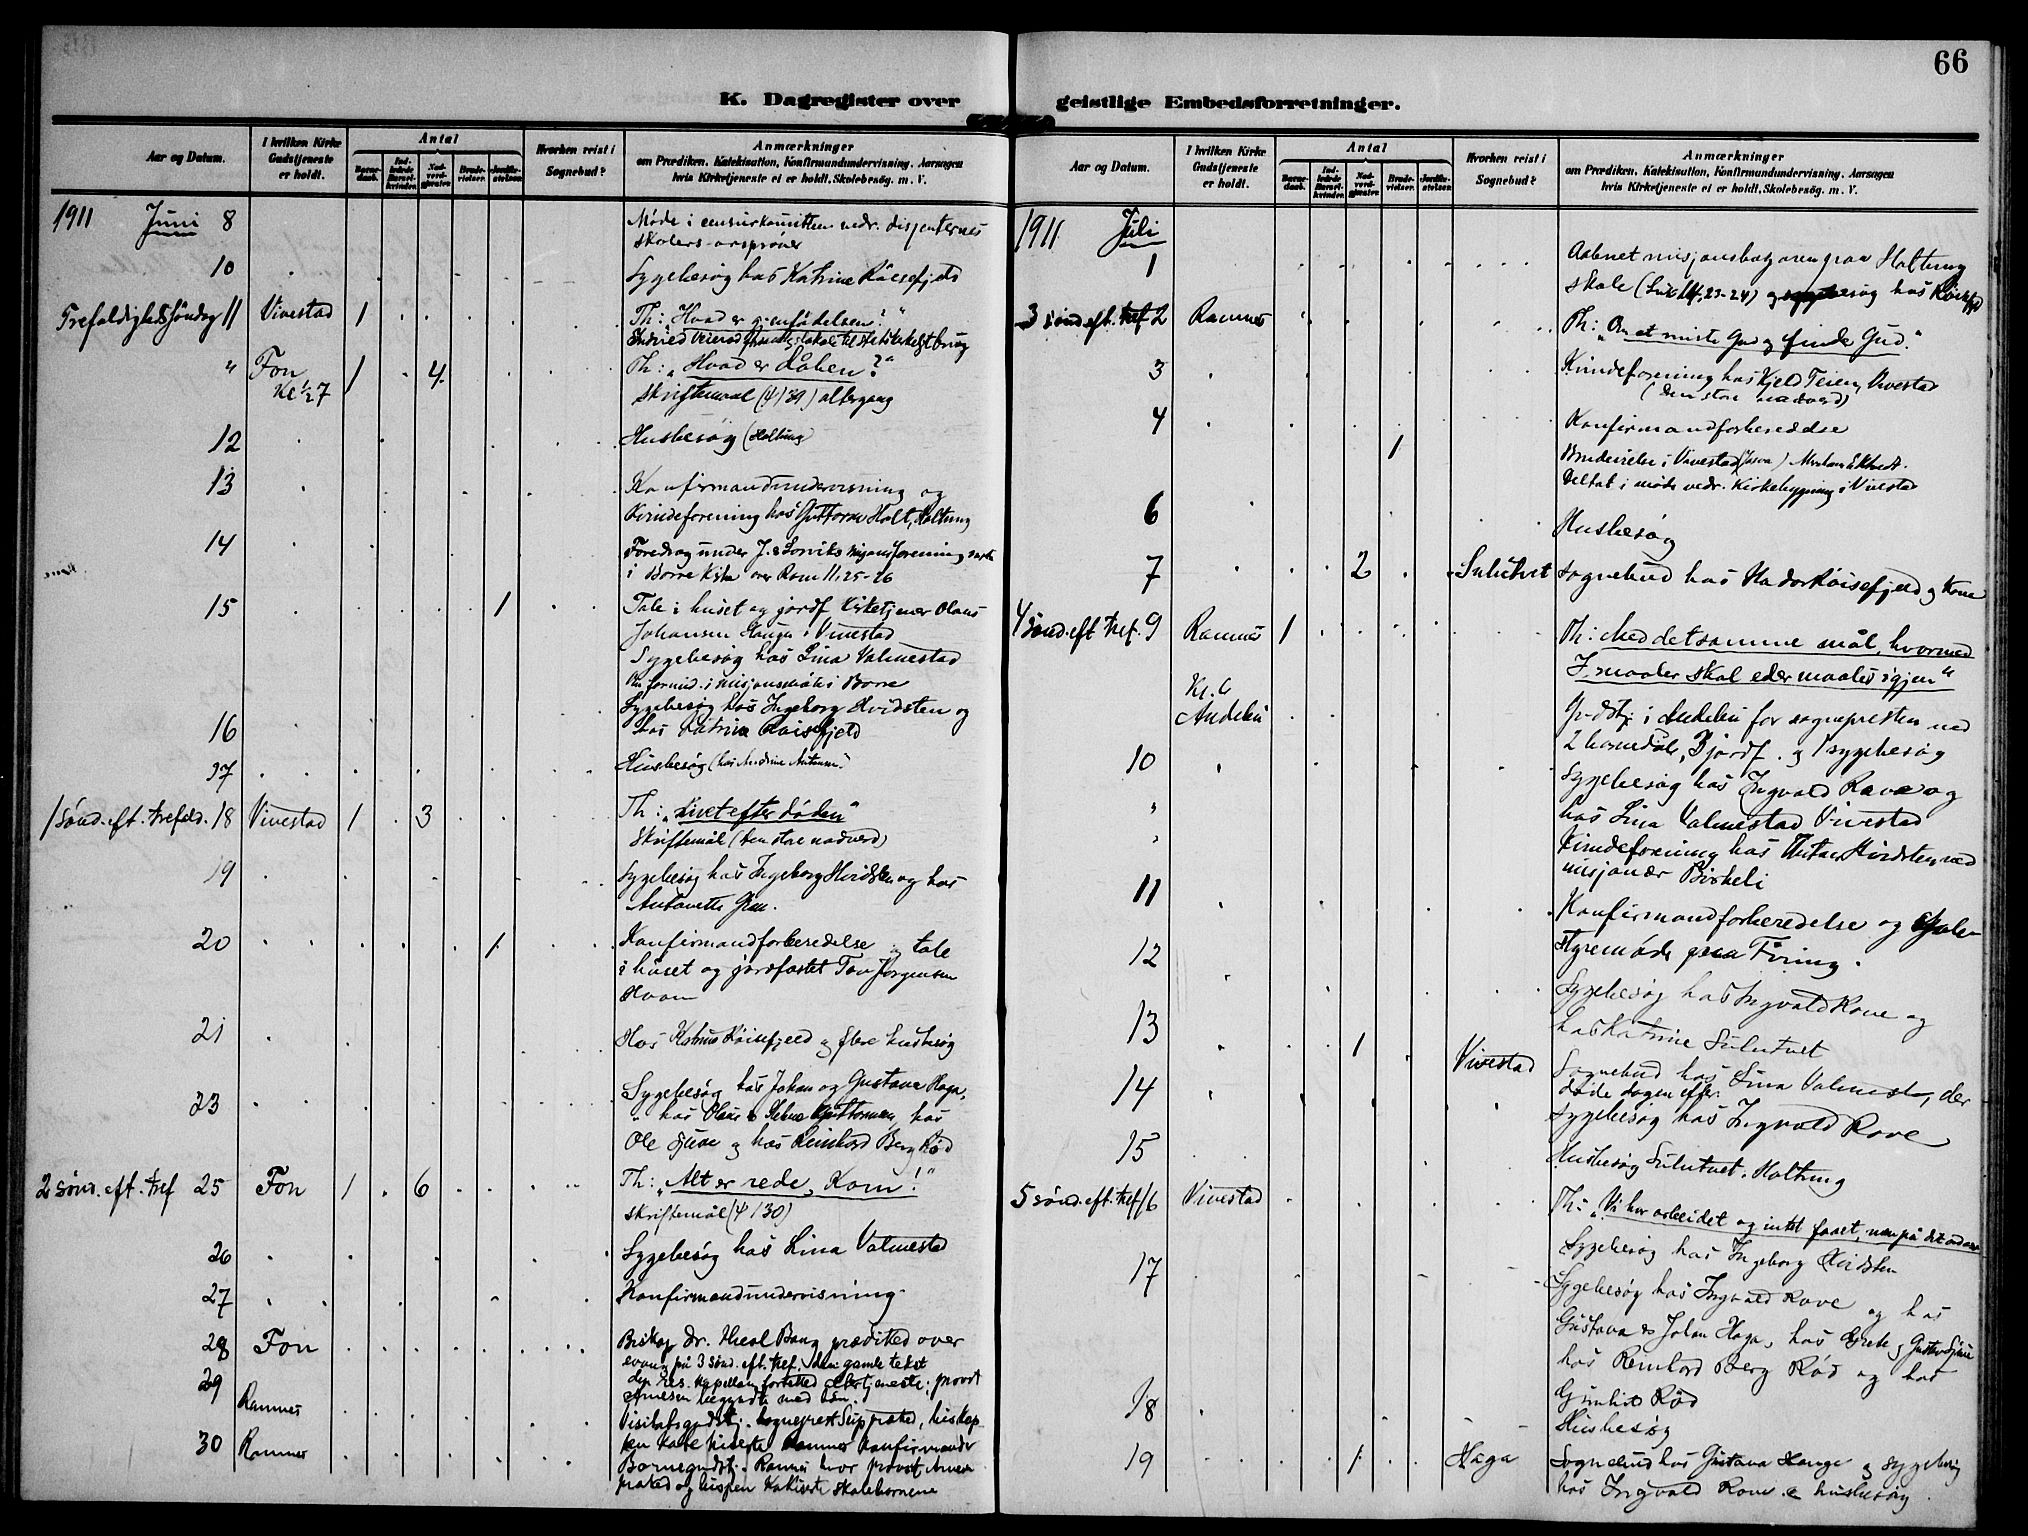 66
K. Dagregister over
geistlige Embedsforretninger.
Aar og Datum.
I hvilken Kirke Gudstjeneste er holdt.
Antal
Barnedaab.
Indledede Barselkvinder.
Nadverdgjester.
Brudevielser.
Jordfæstelser.
Hvorhen reist i Sognebud?
Anmærkninger
om Prædiken, Katekisation, Konfirmandundervisning, Aarsagen
hvis Kirketjeneste ei er holdt, Skolebesøg. m. V.
1911 Juni 8 Møde i censurkomitteen vedr. disjenternes
skolers
10 Sygebesøg hos Katrine Røisefjeld
Trefoldighedssøndag 11 Vivestad 1 Th: „Hvad er gjenfødelsen?"
Indvied Veierød
" Fon 1 4 Th: „Hvad er dåben?"
Kl ½7 Skriftemaal (4/39) altergang
12 Husbesøg (Holtung)
13 Konfirmandundervisning og
Kvindeforening hos Guttorm Holt, Holtung
14 Foredrag under
i Borre Kirke over Rom 11, 25-26
15 1 Tale i huset og jordf. Kirketjener Olaus
Johansen Haugen i Vivestad
Sygebesøg hos Lina Valmestad
i misjonsmøte i Borre
16 Sygebesøg hos Ingeborg Hvidsten og
hos Katrine Røisefjeld
17 Husbesøg (hos Andrine Antonsen)
1 sønd. eft. trefold. 18 Vivestad 1 3 Th: „Livet efter døden"
Skriftemål (den store nadverd)
19 Sygebesøg hos Ingeborg Hvidsten og hos
Antonette
20 1 Konfirmandforberedelse og tale
i huset og jordfæstet Tov Jørgensen
Hvam
21 Hos Katrine Røisefjeld og flere husbesøg
23 Sygebesøg hos Johan og Gustava Haga,
" hos Olaus hos
Ole og hos Reinhord Berg Rød
2 sønd. eft. tref 25 Fon 1 6 Th: „Alt er rede, Kom!"
Skriftemål (4/30)
26 Sygebesøg hos Lina Valmestad
27 Konfirmandundervisning.
28 Fon Biskop dr. Bang prædiked over
evang. på 3 sønd. eft. tref. den gamle tekst
kapellan provst
29 Ramnes Arnesen begyndte med bøn.
Visitatsgudstj. sogneprest præked, biskop-
pen Ramnes konfirmander
30 Ramnes Barnegudstj. i Ramnes hvor provst Arnesen
præked og bispen skolebørnene
Aar og Datum.
I hvilken Kirke Gudstjeneste er holdt.
Antal
Barnedaab.
Indledede Barselkvinder.
Nadverdgjester.
Brudevielser.
Jordfæstelser.
Hvorhen reist i Sognebud?
Anmærkninger
om Prædiken, Katekisation, Konfirmandundervisning, Aarsagen
hvis Kirketjeneste ei er holdt, Skolebesøg. m. V.
1911 Juli
1 Aabnet misjonsbazaren paa Holtung
skole (Luk 14, 23-24) og sygebesøg hos Røisefjeld
3 sønd. eft. tref 2 Ramnes Th: „Om at miste Gud og finde Gud."
3 Kvindeforening hos Kjeld Teien, Vivestad
(Den store nadverd)
4 Konfirmandforberedelse
1 Brudevielse i Vivestad
Deltat i møde vedr. Kirkebygning i Vivestad
6 Husbesøg
7 2 Sulutvet Sognebud hos Hador Røisefjeld og Kone
4 sønd. eft. tref. 9 Ramnes 1 Th: „Med det samme mål, hvormed
I maaler skal eder maales igjen"
Kl. 6
Andebu Gudstj. i Andebu for sognepresten med
2 barnedåb, 3 jordf. og 1 sygebesøg
10 Sygebesøg hos Ingvald Rove og
" hos Lina Valmestad Vivestad
" Kvindeforening hos Hvidsten med
misjonær Birkeli
11 Konfirmandforberedelse og skole-
styremøde paa Foring.
12 Sygebesøg hos Ingvald Rove og
hos Katrine Sulutvet
13 1 Vivestad Sognebud hos Lina Valmestad, der
døde dagen efter.
14 Sygebesøg hos Ingvald Rove
15 Husbesøg Sulutvet, Holtung
5 sønd. eft. tref 16 Vivestad Th: „Vi har arbeidet og intet faaet, men på dit ord
Sygebesøg hos Ingeborg Hvidsten
17 Sygebesøg hos Ingvald Rove og hos
Gustava & Johan Haga, hos Grete og Gustav
hos Reinhord Berg Rød og hos
Rød
18 Husbesøg
19 1 Haga Sognebud hos Gustava Hauga og sygebesøg
hos Ingvald Rove & husbesøg